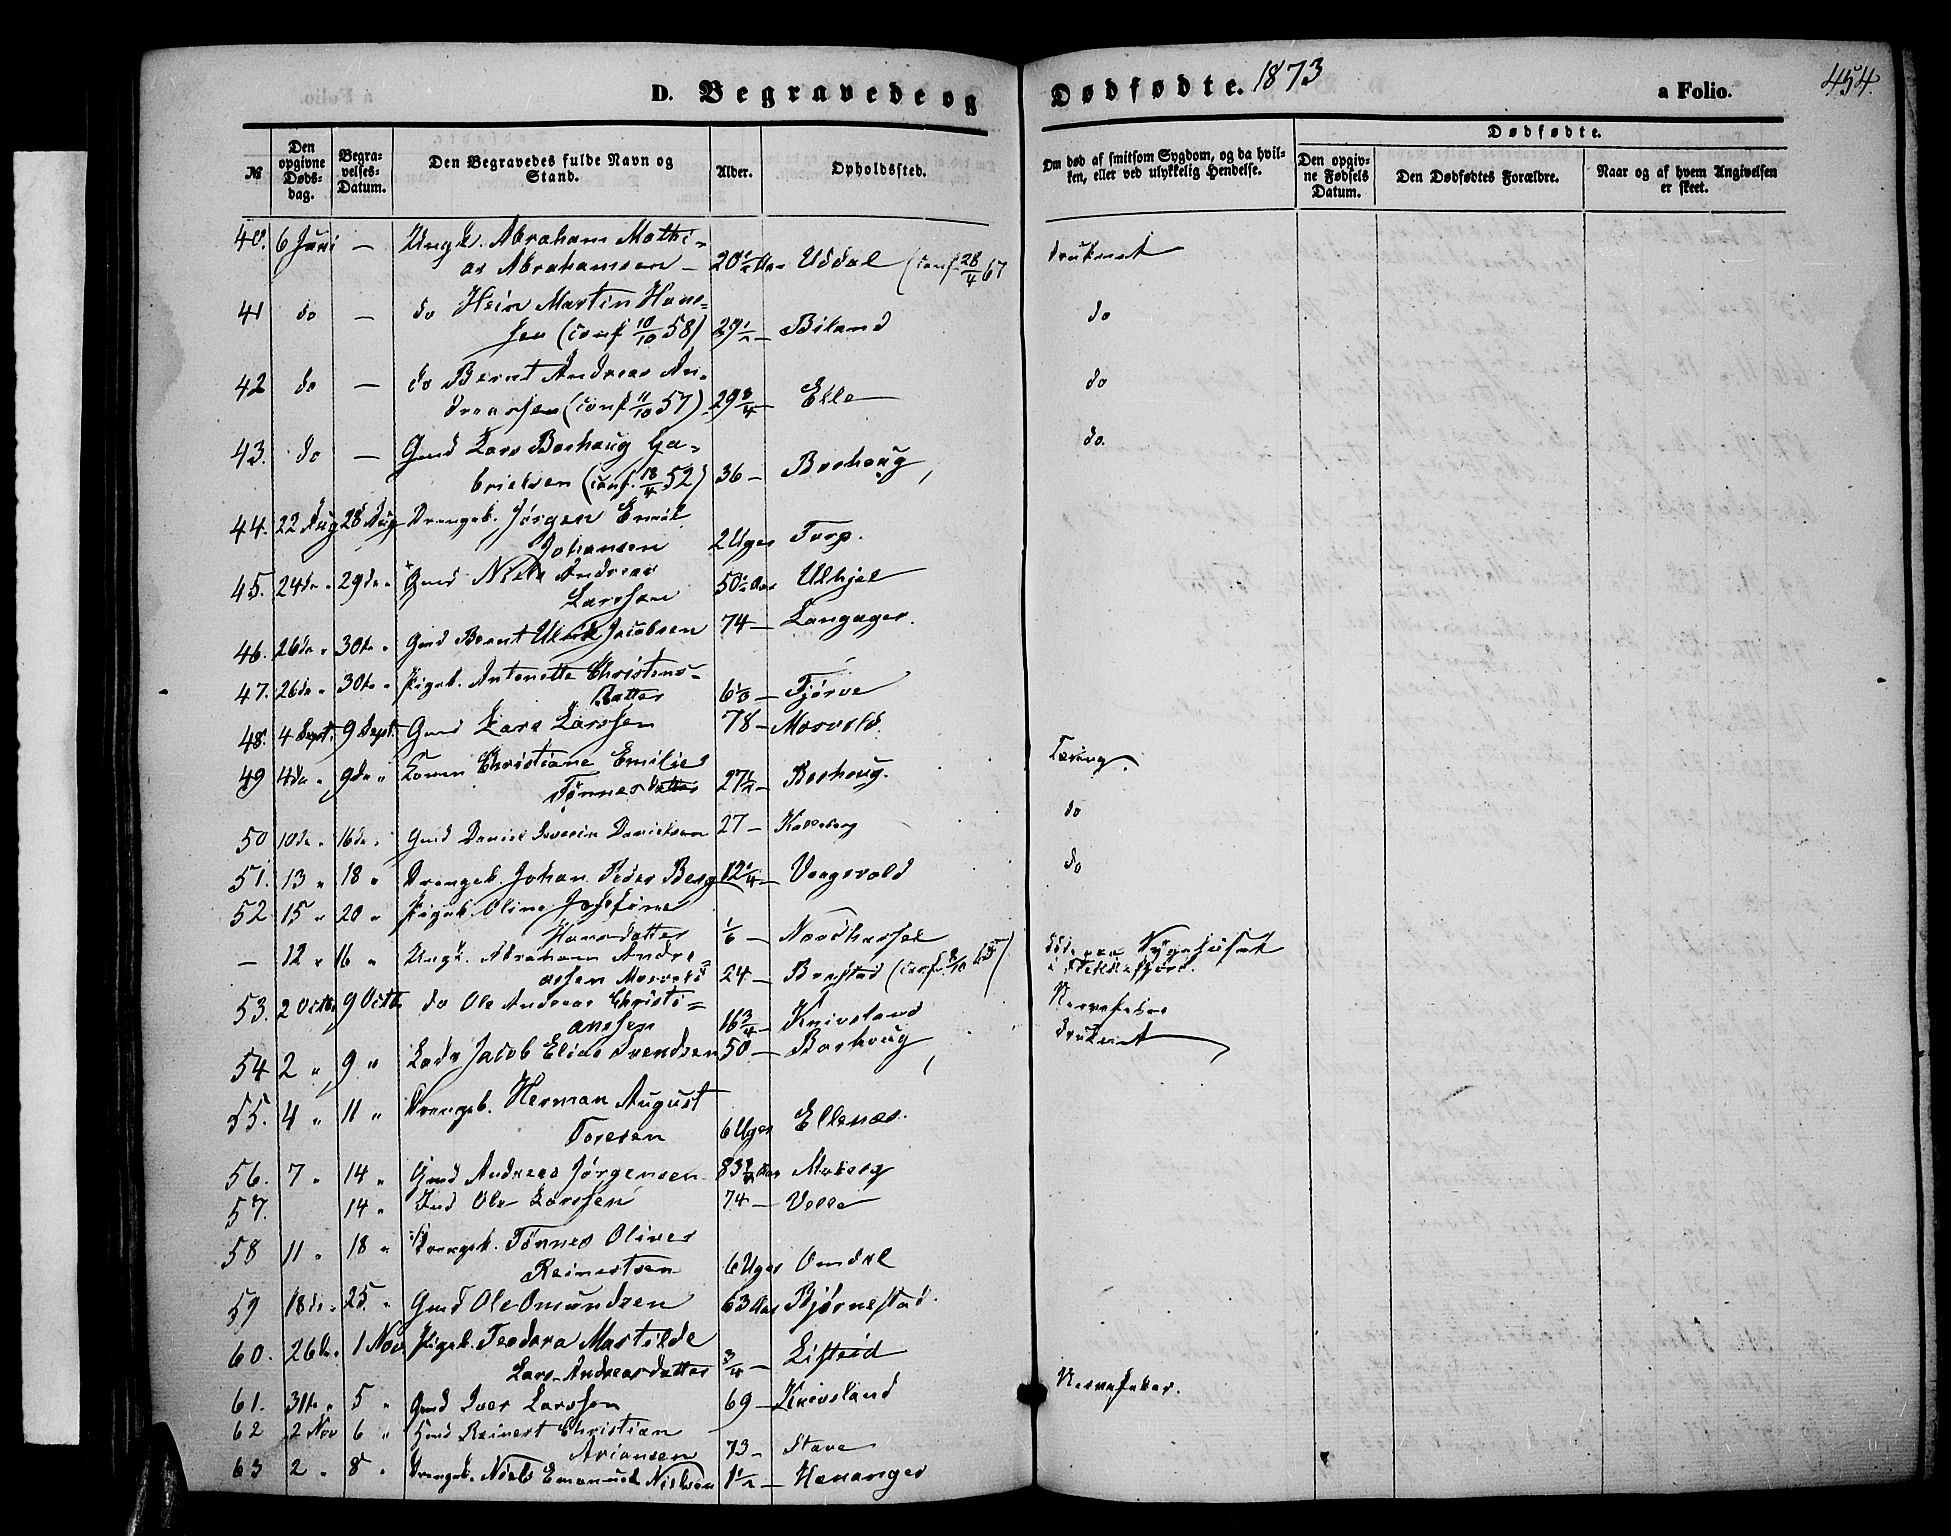 D. Begravede og Dødfødte. 1873 a Folio. 454.
№ Den opgivne Dødsdag. Begravelses-Datum. Den Begravedes fulde Navn og Stand. Alder. Opholdssted. Om død af smitsom Sygdom, og da hvilken, eller ved ulykkelig Hendelse. Dødfødte. Den opgivne Fødsels Datum. Den Dødfødtes Forældre. Naar og af hvem Angivelsen er skeet.
40. 6 Juni — Ungk. Abraham Mathi=
as Abrahamsen — 20½ Aar Uddal (conf. 28/4 67 druknet
41 do — do Hein Martin Hans=
sen (conf 10/10 58) 29½ — Biland do
42 do — do Bernt Andreas An=
dreassen (conf 11/10 57) 29¾ — Elle do
43. do — Gmd Lars Borhaug Ga=
brielsen (conf. 18/4 52) 36 — Borhaug do.
44. 22 Aug 28 Aug Drengeb. Jørgen Emil
Johansen 2 Uger Torp.
45. 24 do " 29 do " Gmd Niels Andreas
Larssen 50½ Aar Ulhjel
46. 26 do " 30te " Gmd Bernt Ulrik Jacobsen 74 — Langager.
47. 26 do " 30te " Pigeb. Antonette Christens=
Datter 6⅓ — Tjørve
48. 4 Sept. 9 Sept. Gmd Lars Larssen 78 — Morvold.
49 4 do " 9 do " Konen Christiane Emilie
Tønnesdatter 27½ — Borhaug. Tæring.
50 10 do " 16 do " Gmd Daniel Severin Danielsen 27 — Kalleberg do
51. 13 " 18 " Drengeb. Johan Peder Berg 12¼ — Vaagsvold do
52 15 " 20 " Pigeb. Oline Josefine
Hansdatter 1/6 — Nordhassel
— 12 " 16 " Ungk. Abraham Andre=
assen Morvold 24 — Brastad (conf. 8/10 65) døde paa Sygehuset
i Flekkefjord.
53. 2 Octb. 9 Octb. do Ole Andreas Christi=
anssen 16¾ — Knivsland Nervefeber
54 2 " 9 " Lods Jacob Elias Svendsen 50 — Borhaug druknet
55. 4 " 11 " Drengeb. Herman August
Toresen 6 Uger Ellenæs.
56. 7 " 14 " Gmd Andreas Jørgensen 83½ Aar Moberg
57. 14 " Ind Ole Larssen 74 — Velle
58 11 " 18 " Drengeb. Tønnes Oliver
Reinertsen 6 Uger Omdal
59 18 do " 25. " Gmd Ole Omundsen 63 Aar Bjørnestad.
60. 26 do " 1 Nov Pigeb. Teodora Mastilde
Lars Andreasdatter ¾ — Listeid
61. 31te " 5 " Gmd Iver Larssen 69 — Knivsland Nervefeber.
62 2 Nov 6 " Gmd Reinert Christian
Ariansen 73 — Stave
63 2 " 8 " Drengeb. Niels Emanuel Nielsen 1½ — Hananger